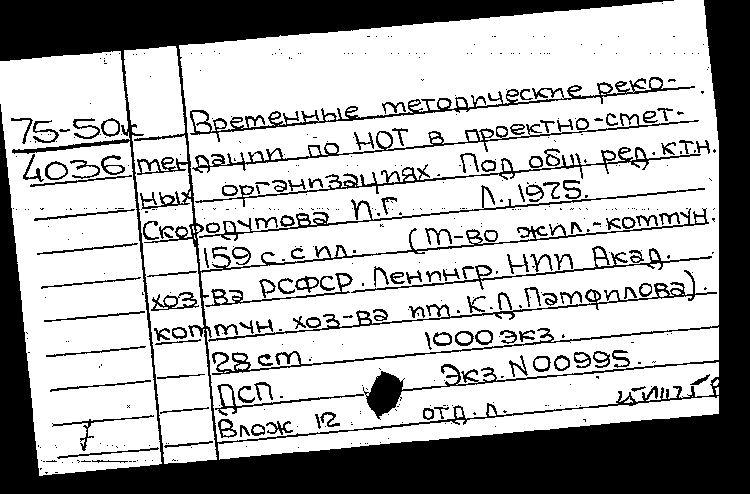 75-50к Временные методические реко-
4036 мендации по НОТ в проектно-смет-
ных организациях. Под общ. ред. к.т.н.
Скородумова П.Г. Л., 1975.
159 с. с ил. (М-во жил.-коммун.
хоз-ва РСФСР. Ленингр. НИИ Акад.
коммун. хоз-ва им. К.Д. Памфилова).
28 см. 1000 экз.
ДСП. Экз. N 00995.
Влож 12 отд. л.